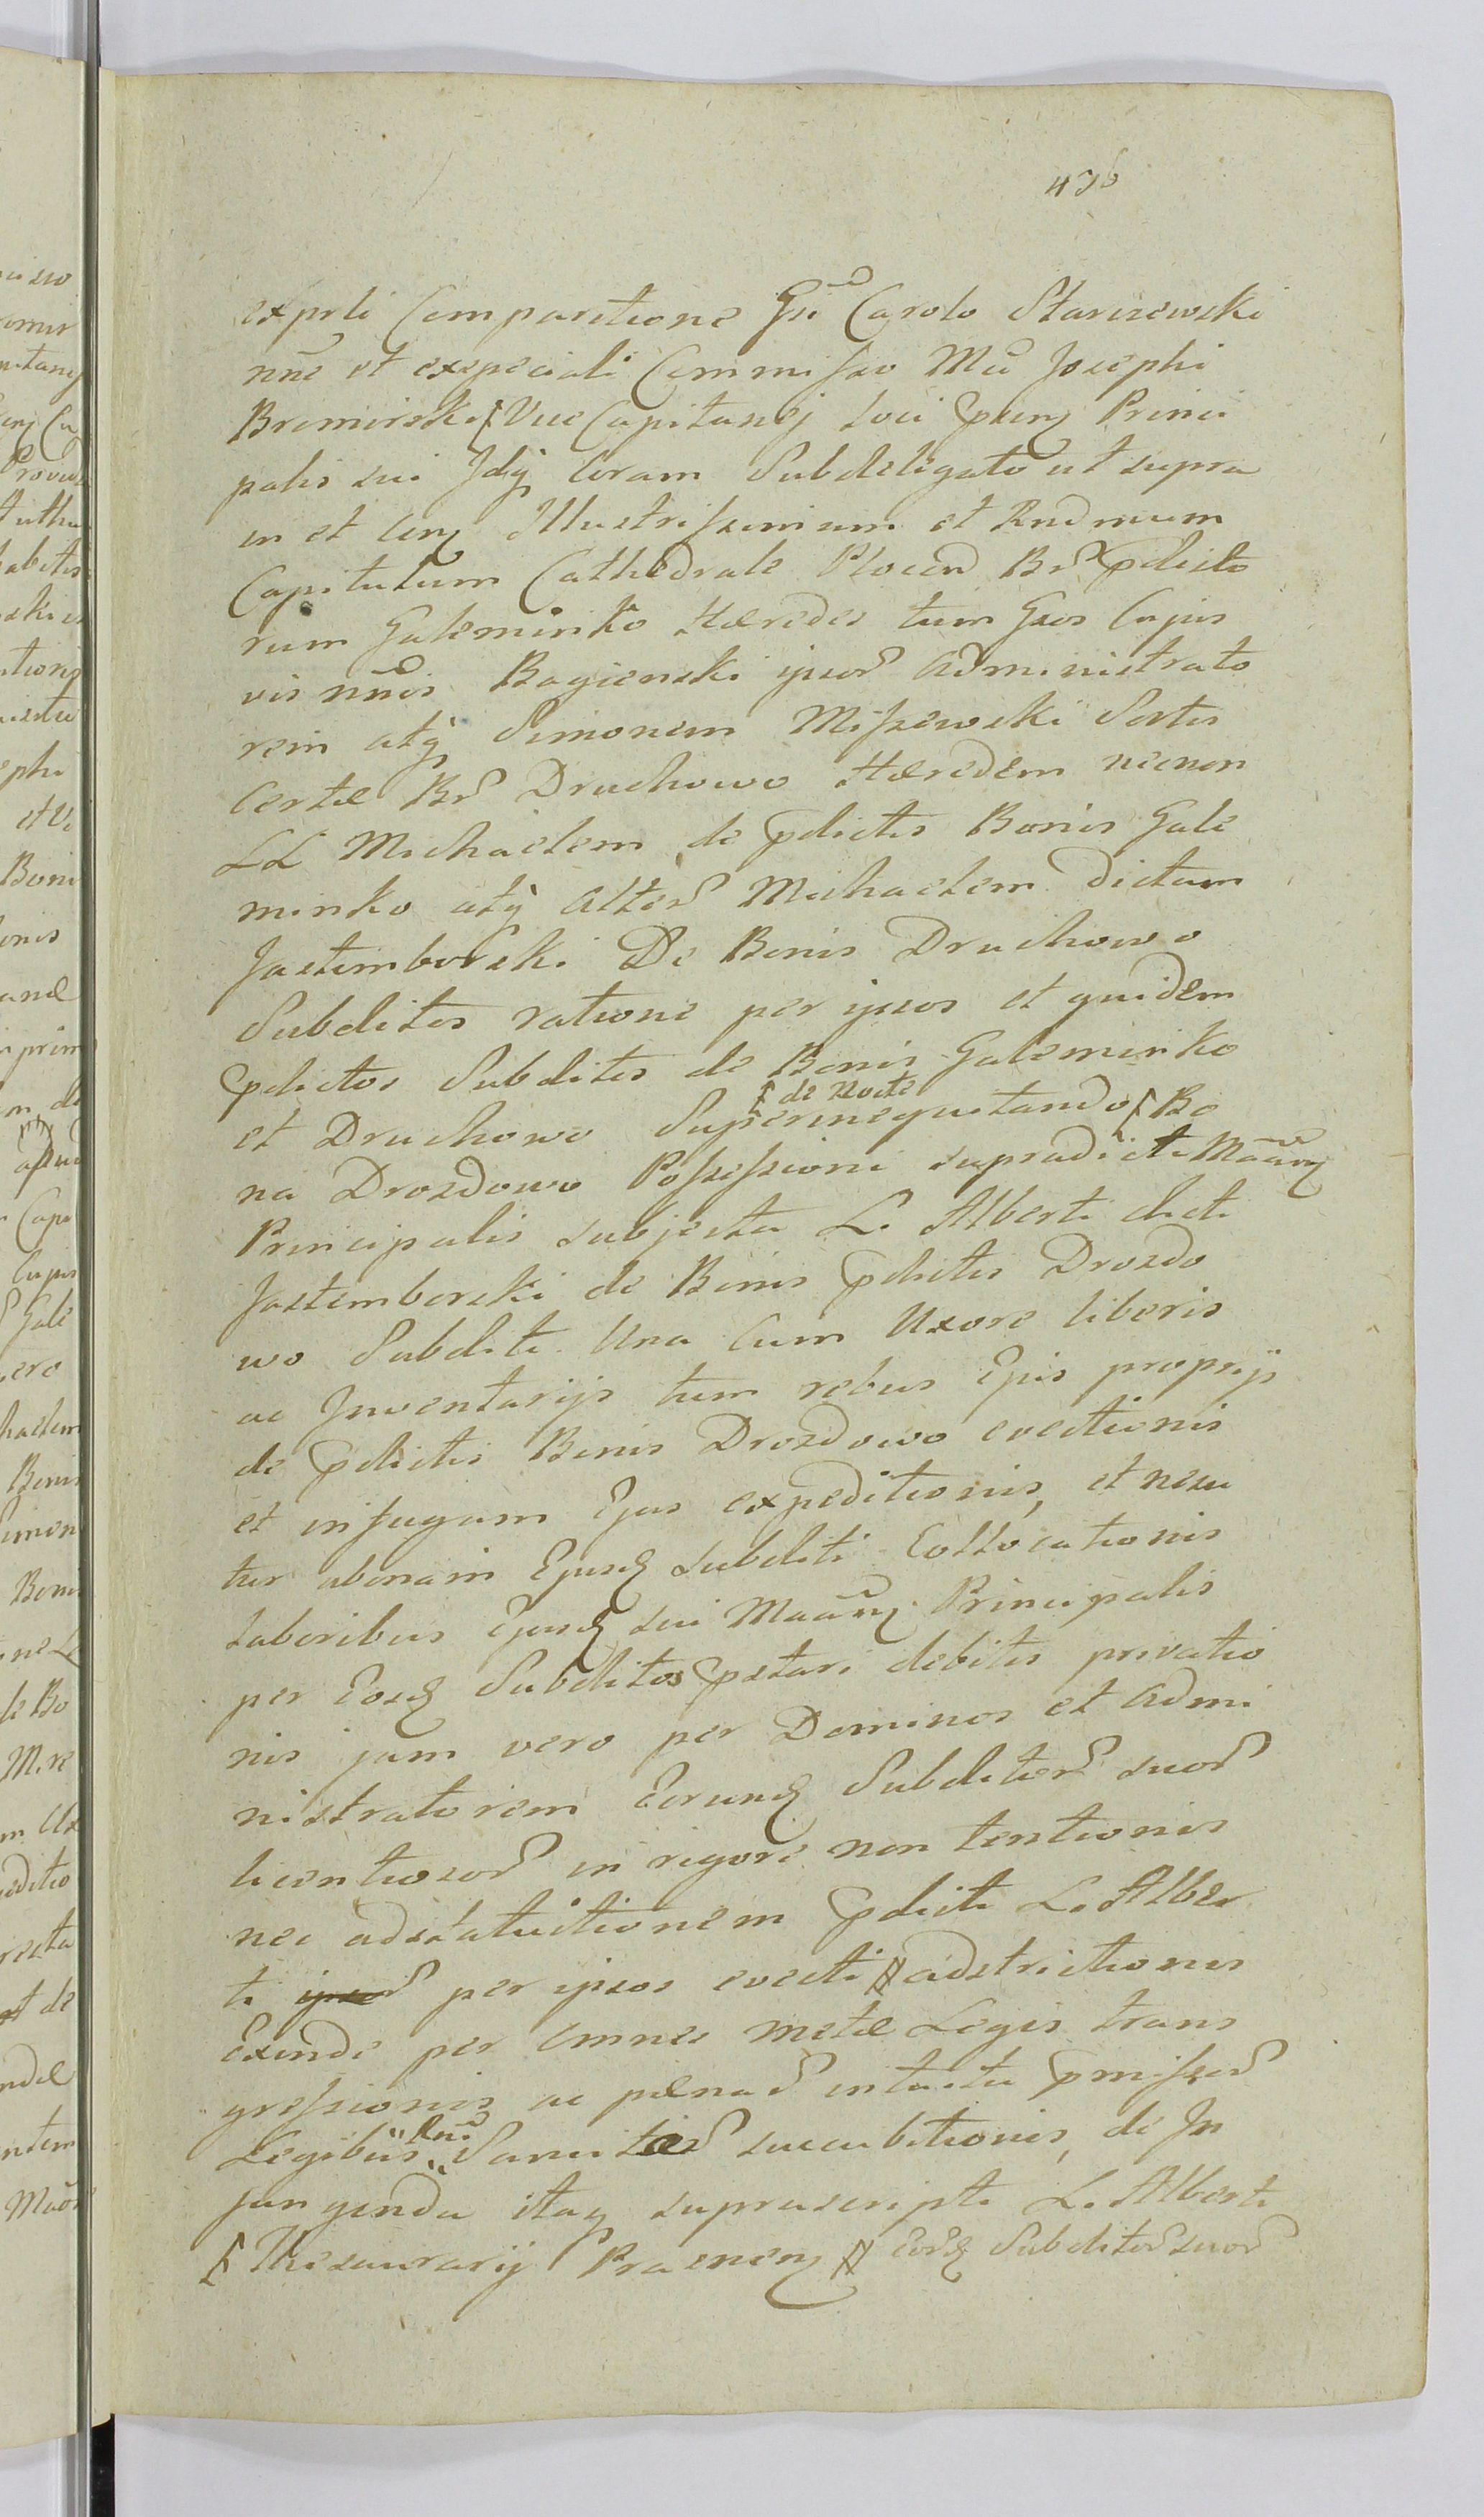 476
exprti Comparitione Gsi Carolo Stariszewski
nñe et exspeciali Commisso Mci Josephi
Bromirski ⌈ Vice Capitanej loci Principalis
palis sui Idq coram Subdelegato ut supra
in et Illustrissimum et Rndmum
Capitulum Cathedrale Plocen Br pdicto
rum Galeminko Hæredes tum Gsos Cujus
vis nñis Bagienski ipsor Administrato
rem atq Simonem Miszewski Sortis
Certæ Br Druchowo Hæredem necnon
LL Michaelem de pdictis Bonis Gale
minko atq Alter Michaelem dictum
Jastemborski De Bonis Druchowo
Subditos ratione per ipsos et quidem
pdictos Subditos de Bonis Galeminko
et Druchowo Superinequitando ⌈ Bo
⌈ de Nocte
na Drozdowo Possessioni supradicti Maānej
Principalis subjecta L. Alberti dicti
Jastemborski de Bonis pdictis Drozdo
wo Subditi Una Cum Uxore liberis
ac Inventarijs tum rebus Ejus proprijs
de pdictis Bonis Drozdowo evectionis
et in fugam Ejus expeditionis, et nescitur
tur ubinam Ejusd Subditi Collocationis
laboribus Ejusd sui Principalis
per Eosd Subditos pstari debitis privatio
nis jam vero per Dominos et Admi
nistratorem Eorund Subditor suor
licentiosor in rigore non tentionis
nec adstatuitionem pdicti L. Alber
ti ipsor per ipsos evecti # adstrictionis
Exinde per omnes metæ Legis trans
gressionis ac pænar intuitu pmissor
Legibus Rni Sancitar succubitionis, de In
jungenda itaq suprascripti L. Alberti
⌈ Thesaurarij Praenen # eord Subditor suor